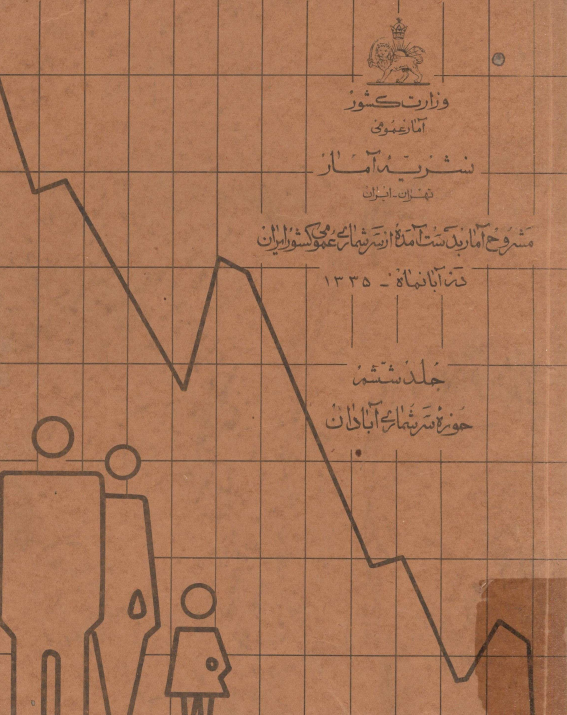 وزارت کشور
آمار عمومی
نشریه آمار
تهران - ایران
مشروح آمار بدست آمده از سرشماری عمومی کشور ایران
در آبانماه - ۱۳۳۵
جلد ششم
حوزه سرشماری آبادان